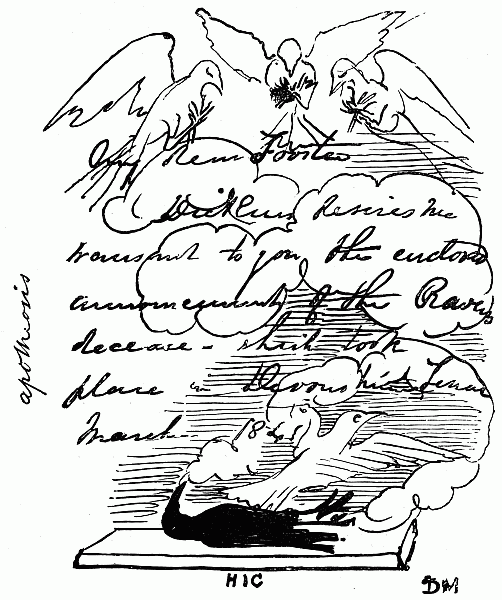 My dear Forster
Dickens desires me
transmit to you the enclosed
announcement of the Ravens
decease - which took
place in Devonshire Terrace
March 1841
apotheosis
HIC
DM